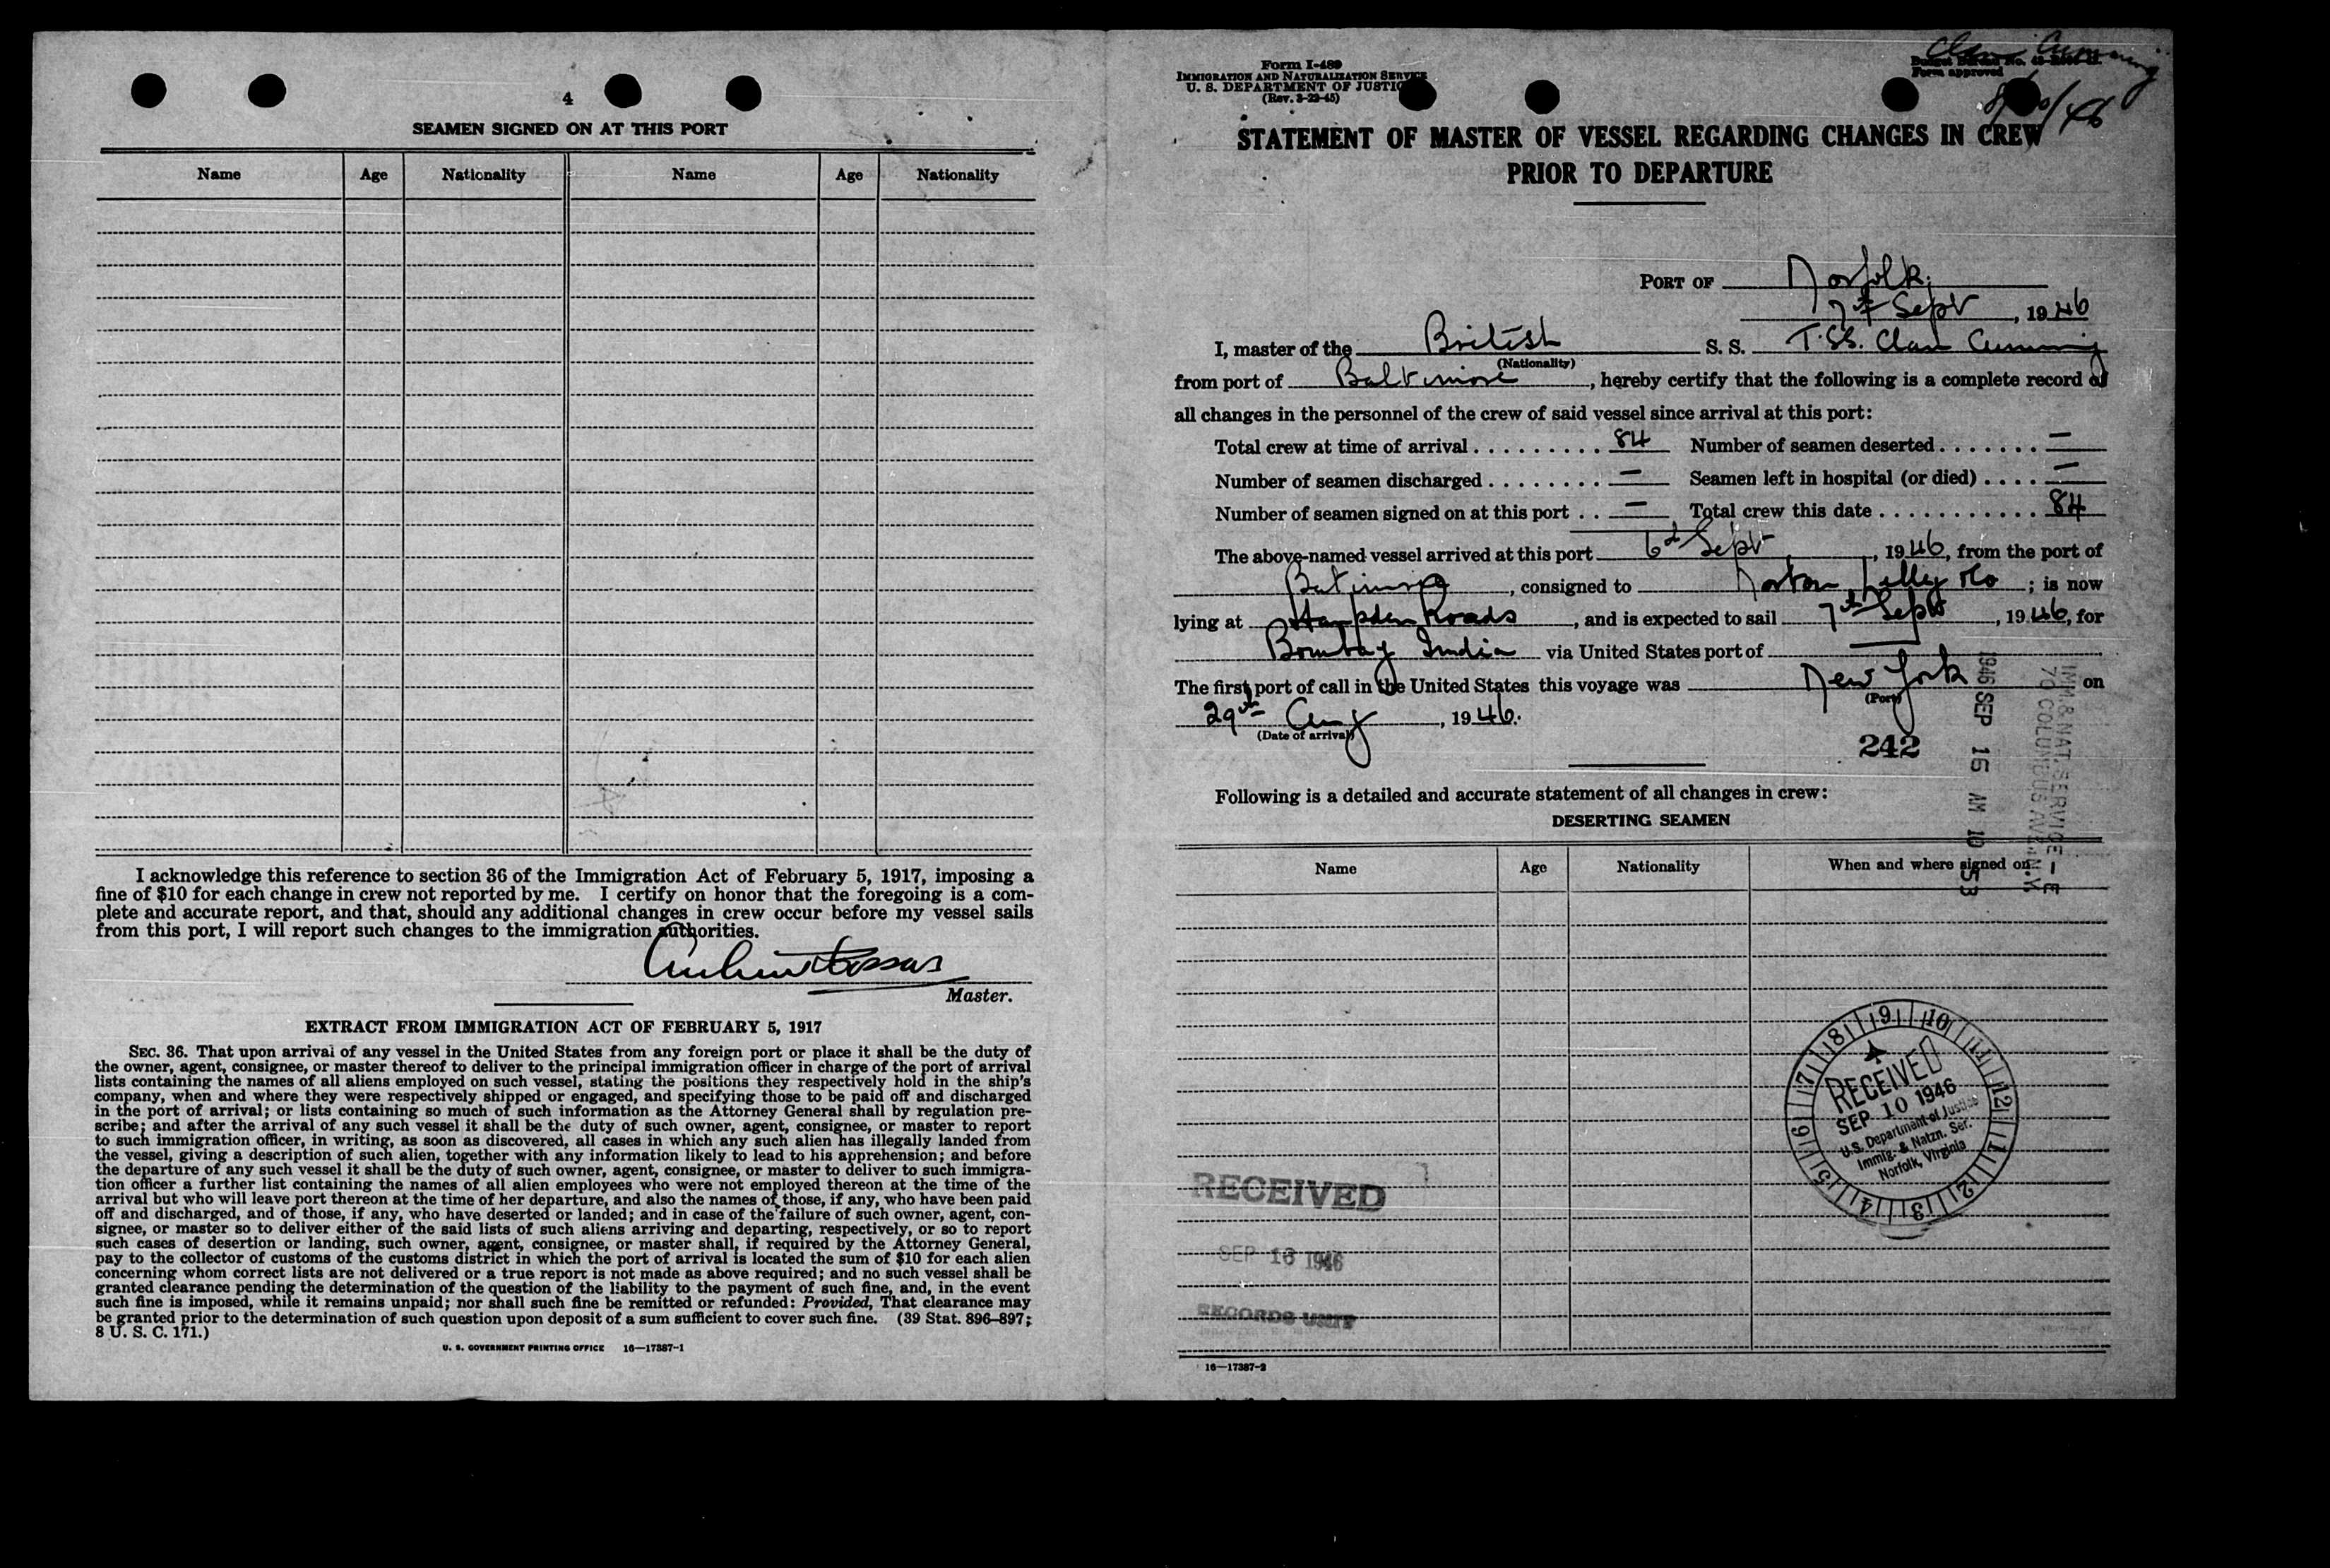 4
SEAMEN SIGNED ON AT THIS PORT
Name Age Nationality Name Age Nationality
I acknowledge this reference to section 36 of the Immigration Act of February 5, 1917, imposing a
fine of $10 for each change in crew not reported by me. I certify on honor that the foregoing is a com-
plete and accurate report, and that, should any additional changes in crew occur before my vessel sails
from this port, I will report such changes to the immigration authorities.
Master.
EXTRACT FROM IMMIGRATION ACT OF FEBRUARY 5, 1917
SEC. 36. That upon arrival of any vessel in the United States from any foreign port or place it shall be the duty of
the owner, agent, consignee, or master thereof to deliver to the principal immigration officer in charge of the port of arrival
lists containing the names of all aliens employed on such vessel, stating the positions they respectively hold in the ship's
company, when and where they were respectively shipped or engaged, and specifying those to be paid off and discharged
in the port of arrival; or lists containing so much of such information as the Attorney General shall by regulation pre-
scribe; and after the arrival of any such vessel it shall be the duty of such owner, agent, consignee, or master to report
to such immigration officer, in writing, as soon as discovered, all cases in which any such alien has illegally landed from
the vessel, giving a description of such alien, together with any information likely to lead to his apprehension; and before
the departure of any such vessel it shall be the duty of such owner, agent, consignee, or master to deliver to such immigra-
tion officer a further list containing the names of all alien employees who were not employed thereon at the time of the
arrival but who will leave port thereon at the time of her departure, and also the names of those, if any, who have been paid
off and discharged, and of those, if any, who have deserted or landed; and in case of the failure of such owner, agent, con-
signee, or master so to deliver either of the said lists of such aliens arriving and departing, respectively, or so to report
such cases of desertion or landing, such owner, agent, consignee, or master shall, if required by the Attorney General,
pay to the collector of customs of the customs district in which the port of arrival is located the sum of $10 for each alien
concerning whom correct lists are not delivered or a true report is not made as above required; and no such vessel shall be
granted clearance pending the determination of the question of the liability to the payment of such fine, and, in the event
such fine is imposed, while it remains unpaid; nor shall such fine be remitted or refunded: Provided, That clearance may
be granted prior to the determination of such question upon deposit of a sum sufficient to cover such fine. (39 Stat. 896-897;
8 U. S. C. 171.)
U. S. GOVERNMENT PRINTING OFFICE 16—17387-1
Form I-489
IMMIGRATION AND NATURALIZATION SERVICE
U. S. DEPARTMENT OF JUSTICE
(Rev. 3-22-45)
Clan Cumming
Budget Bureau No.
Form approved
STATEMENT OF MASTER OF VESSEL REGARDING CHANGES IN CREW
PRIOR TO DEPARTURE
PORT OF Norfolk.
7th Sept, 1946
I, master of the British S. S. T.SS. Clan Cumming
(Nationality)
from port of Baltimore, hereby certify that the following is a complete record of
all changes in the personnel of the crew of said vessel since arrival at this port:
Total crew at time of arrival . . . . . . . . . 84 Number of seamen deserted . . . . . . . —
Number of seamen discharged . . . . . . . . — Seamen left in hospital (or died) . . . . —
Number of seamen signed on at this port . . — Total crew this date . . . . . . . . . . . 84
The above-named vessel arrived at this port 6th Sept, 1946, from the port of
Batimore, consigned to Norton Lilly & Co; is now
lying at Hampden Roads, and is expected to sail 7th Sept, 1946, for
Bombay India via United States port of —
The first port of call in the United States this voyage was New York on
(Port)
29th Aug, 1946.
(Date of arrival)
242
IMM. & NAT. SERVICE - E
70 COLUMBUS AVE., N.Y.
1946 SEP 16 AM 10 53
Following is a detailed and accurate statement of all changes in crew:
DESERTING SEAMEN
Name Age Nationality When and where signed on
9 10 11 12 1 2 3 4 5 6 7 8
RECEIVED
SEP 10 1946
U.S. Department of Justice
Immig. & Natzn. Ser.
Norfolk, Virginia
RECEIVED
SEP 16 1946
RECORDS UNIT
16—17387-2